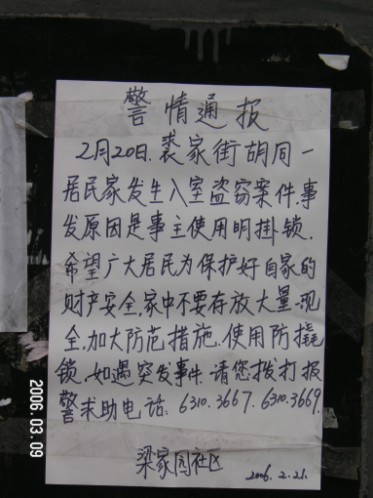 警情通报
2月20日.裘家街胡同一
居民家发生入室盗窃案件.事
发原因是事主使用明挂锁.
希望广大居民为保护好自家的
财产安全.家中不要存放大量现
金.加大防范措施.使用防撬
锁.如遇突发事件.请您拨打报
警求助电话:6310.3667.6310.3669.
梁家园社区
2006.2.21.
2006.03.09